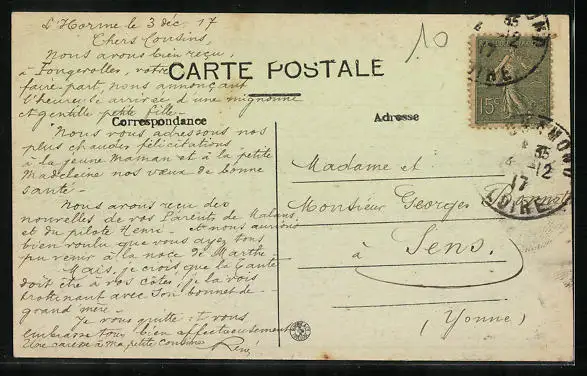 L'Horme le 3 déc. 17
Chers Cousins,
Nous avons bien reçu,
à Fougerolles, votre
faire-part, nous annonçant
l'heureuse arrivée d'une mignonne
et gentille petite fille.
Nous vous adressons nos
plus chaudes félicitations
à la jeune Maman et à la petite
Madeleine nos vœux de bonne
santé.
Nous avons reçu des
nouvelles de vos Parents de
et du pilote Henri. et nous aurions
bien voulu que vous ayez tous
pu venir à la noce de Marthe
Mais, je crois que la Tante
doit être à vos côtés; je la vois
trottinant avec son bonnet de
grand'mère.
Je vous quitte et vous
embrasse tous bien affectueusement
Une caresse à ma petite cousine René
CARTE POSTALE
Correspondance
Adresse
10
15c
15
12
17
LOIRE
15
12
17
LOIRE
Madame et
Monsieur Georges
à Sens.
(Yonne)